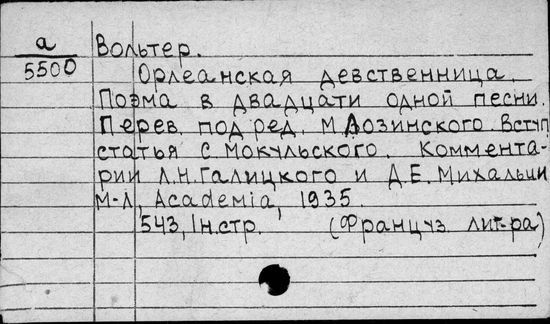 а Вольтер.
5500 Орлеанская девственница.
Поэма в двадцати одной песни.
Перев. под ред. М Лозинского. Вступ
статья С. Мокульского. Коммента-
рии Л.Н. Галицкого и Д.Е. Михальчи
М-Л, Academia, 1935.
543, 1н.стр. (Француз. лит-ра)